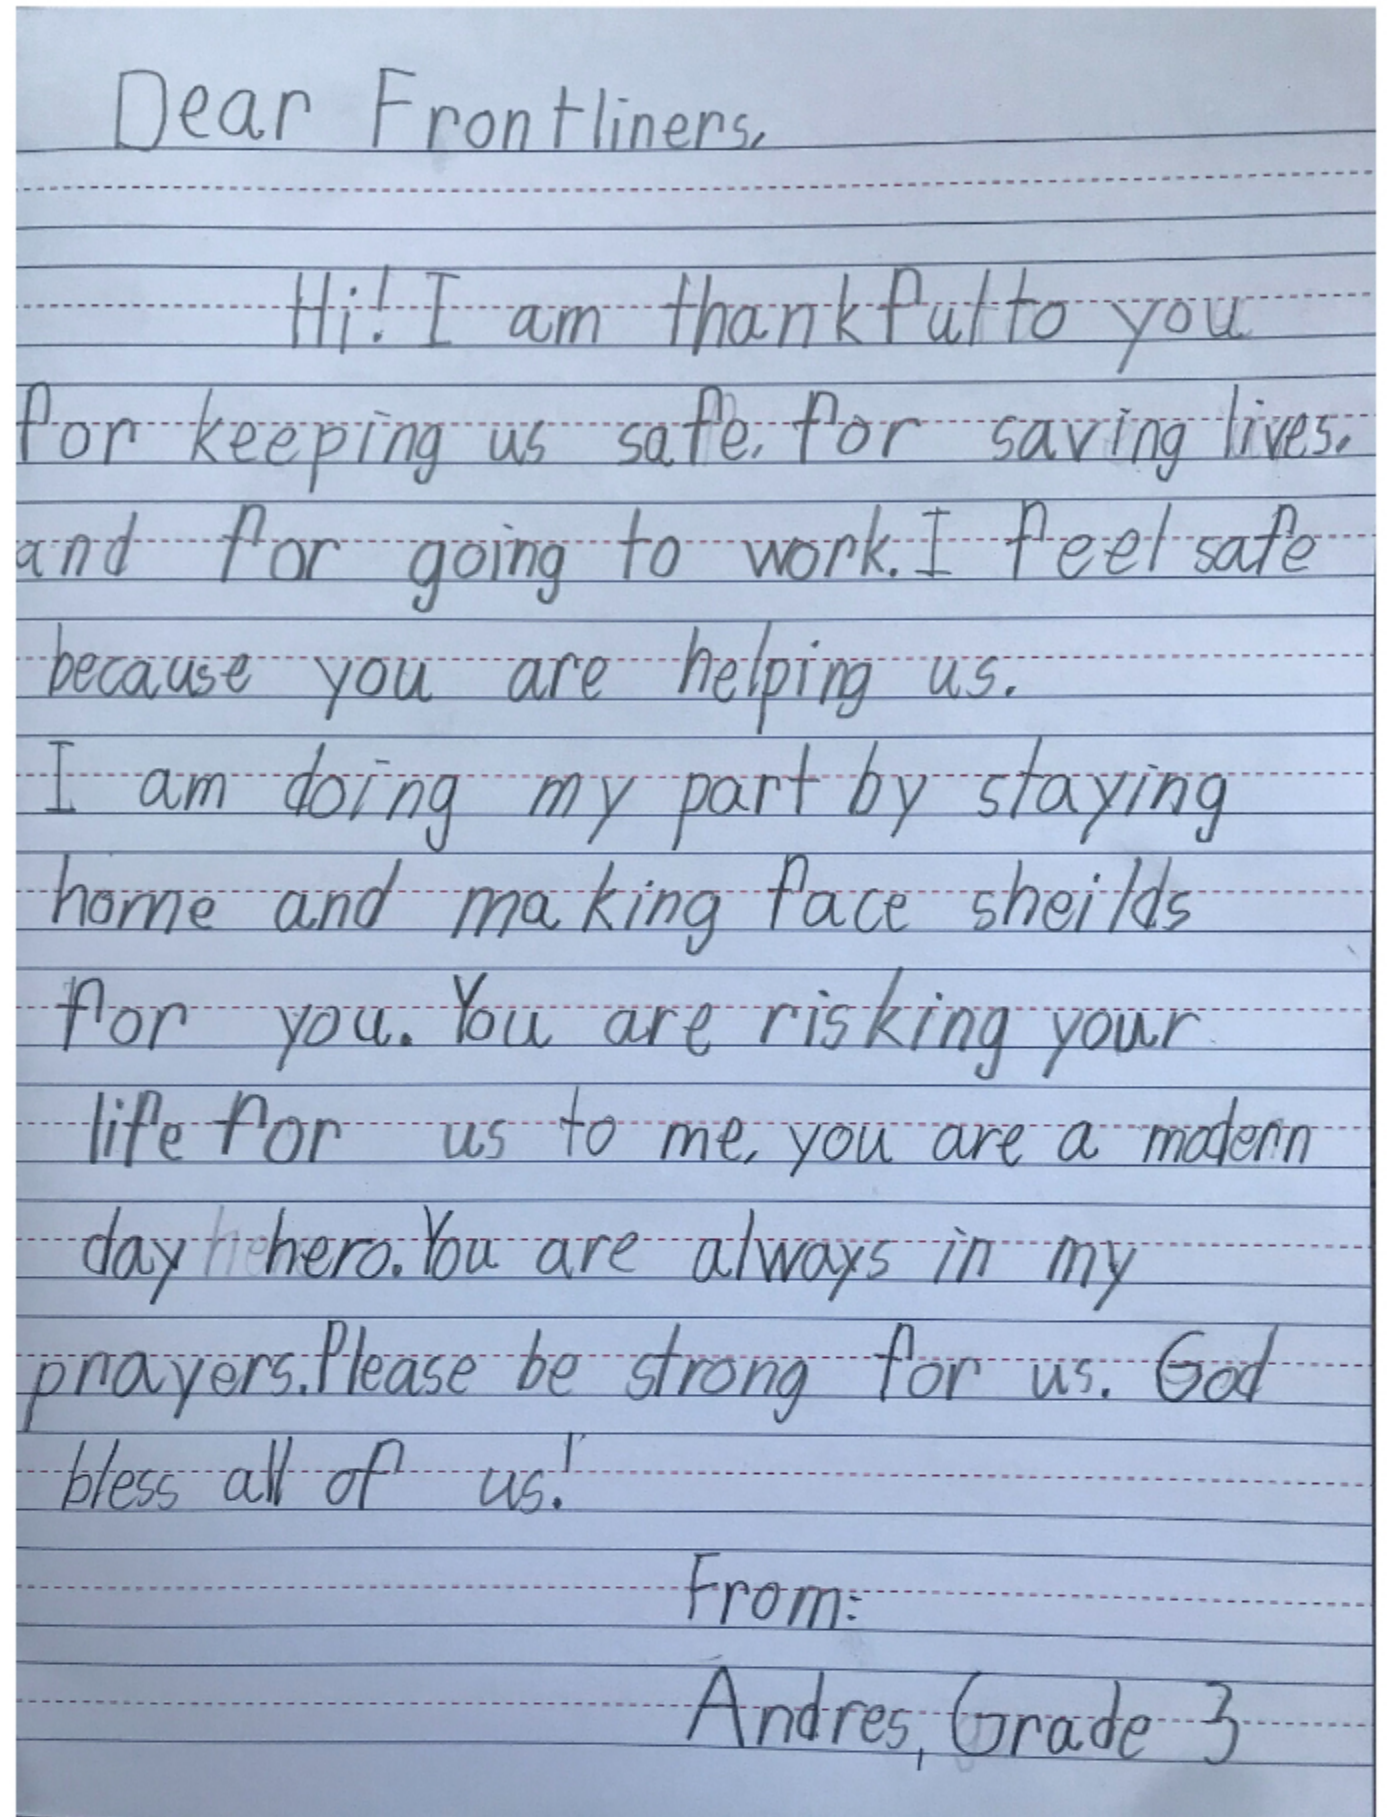 Dear Frontliners,
Hi! I am thankful to you
for keeping us safe, for saving lives,
and for going to work. I feel safe
because you are helping us.
I am doing my part by staying
home and making face sheilds
for you. You are risking your
life for us to me, you are a modern
day hero. You are always in my
prayers. Please be strong for us. God
bless all of us!
From:
Andres, Grade 3